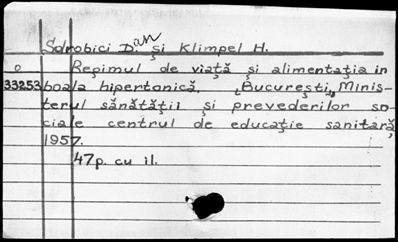 Sdrobici Dan și Klimpel H.
O Regimul de viață și alimentația in
33253 boala hipertonică, București, Minis-
terul sănătății și prevederilor so-
ciale centrul de educație sanitară,
1957.
47p. cu il.